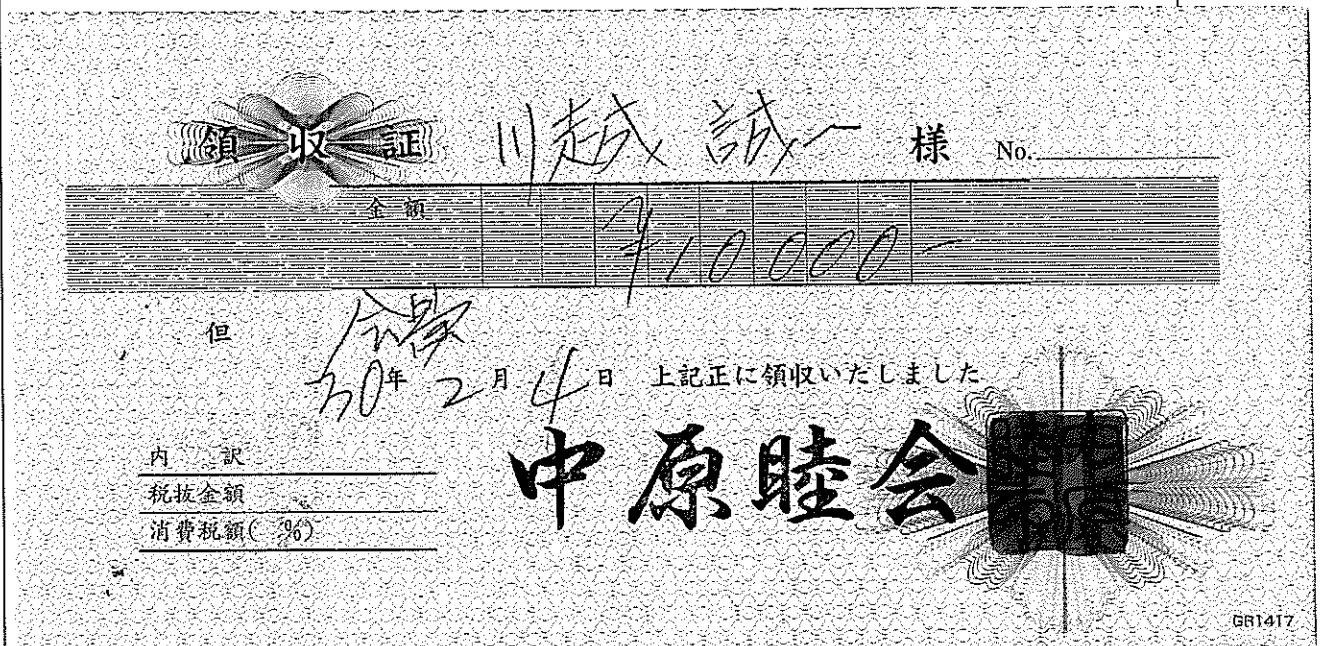 領収証 川越 誠一 様 No.
金額 ¥10000-
但 会費
30年2月4日 上記正に領収いたしました
内 訳
税抜金額
消費税額( %)
中原睦会
GR1417